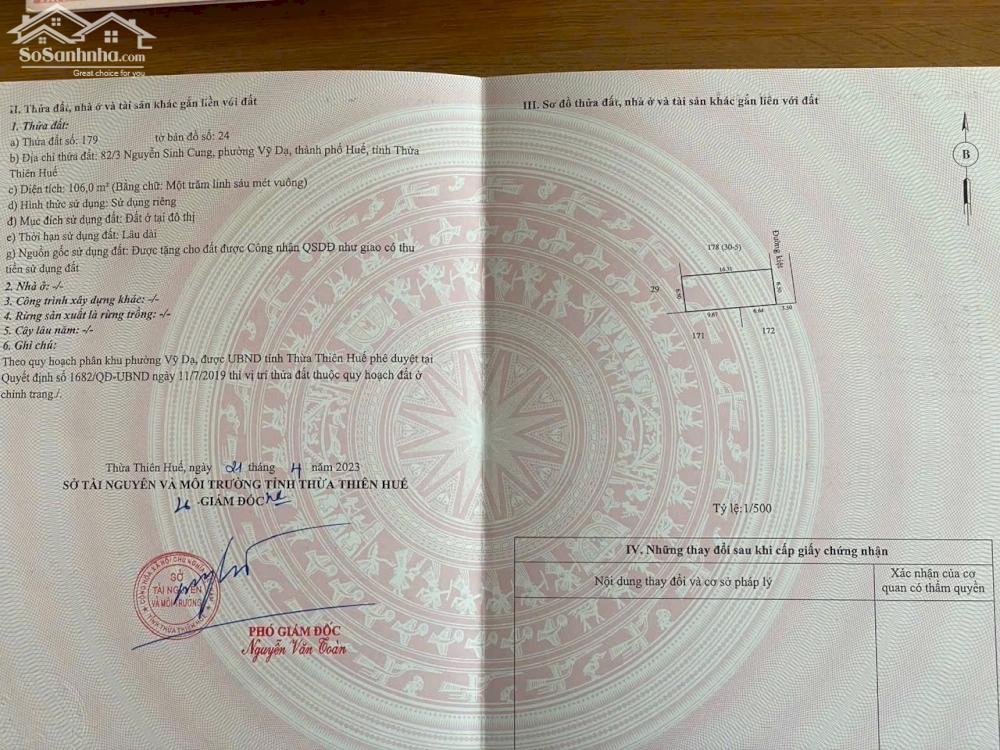 SoSanhnha.com
Great choice for you
II. Thửa đất, nhà ở và tài sản khác gắn liền với đất
1. Thửa đất:
a) Thửa đất số: 179 tờ bản đồ số: 24
b) Địa chỉ thửa đất: 82/3 Nguyễn Sinh Cung, phường Vỹ Dạ, thành phố Huế, tỉnh Thừa
Thiên Huế
c) Diện tích: 106,0 m² (Bằng chữ: Một trăm linh sáu mét vuông)
d) Hình thức sử dụng: Sử dụng riêng
đ) Mục đích sử dụng đất: Đất ở tại đô thị
e) Thời hạn sử dụng đất: Lâu dài
g) Nguồn gốc sử dụng đất: Được tặng cho đất được Công nhận QSDĐ như giao có thu
tiền sử dụng đất
2. Nhà ở: -/-
3. Công trình xây dựng khác: -/-
4. Rừng sản xuất là rừng trồng: -/-
5. Cây lâu năm: -/-
6. Ghi chú:
Theo quy hoạch phân khu phường Vỹ Dạ, được UBND tỉnh Thừa Thiên Huế phê duyệt tại
Quyết định số 1682/QĐ-UBND ngày 11/7/2019 thì vị trí thửa đất thuộc quy hoạch đất ở
chỉnh trang./.
Thừa Thiên Huế, ngày 21 tháng 4 năm 2023
SỞ TÀI NGUYÊN VÀ MÔI TRƯỜNG TỈNH THỪA THIÊN HUẾ
GIÁM ĐỐC
SỞ
TÀI NGUYÊN
VÀ MÔI TRƯỜNG
TỈNH THỪA THIÊN HUẾ
PHÓ GIÁM ĐỐC
Nguyễn Văn Toàn
III. Sơ đồ thửa đất, nhà ở và tài sản khác gắn liền với đất
B
178 (30-5)
Đường kiệt
16.31
29
6.50
6.50
9.67
6.64
3.50
171
172
Tỷ lệ: 1/500
IV. Những thay đổi sau khi cấp giấy chứng nhận
Nội dung thay đổi và cơ sở pháp lý
Xác nhận của cơ
quan có thẩm quyền